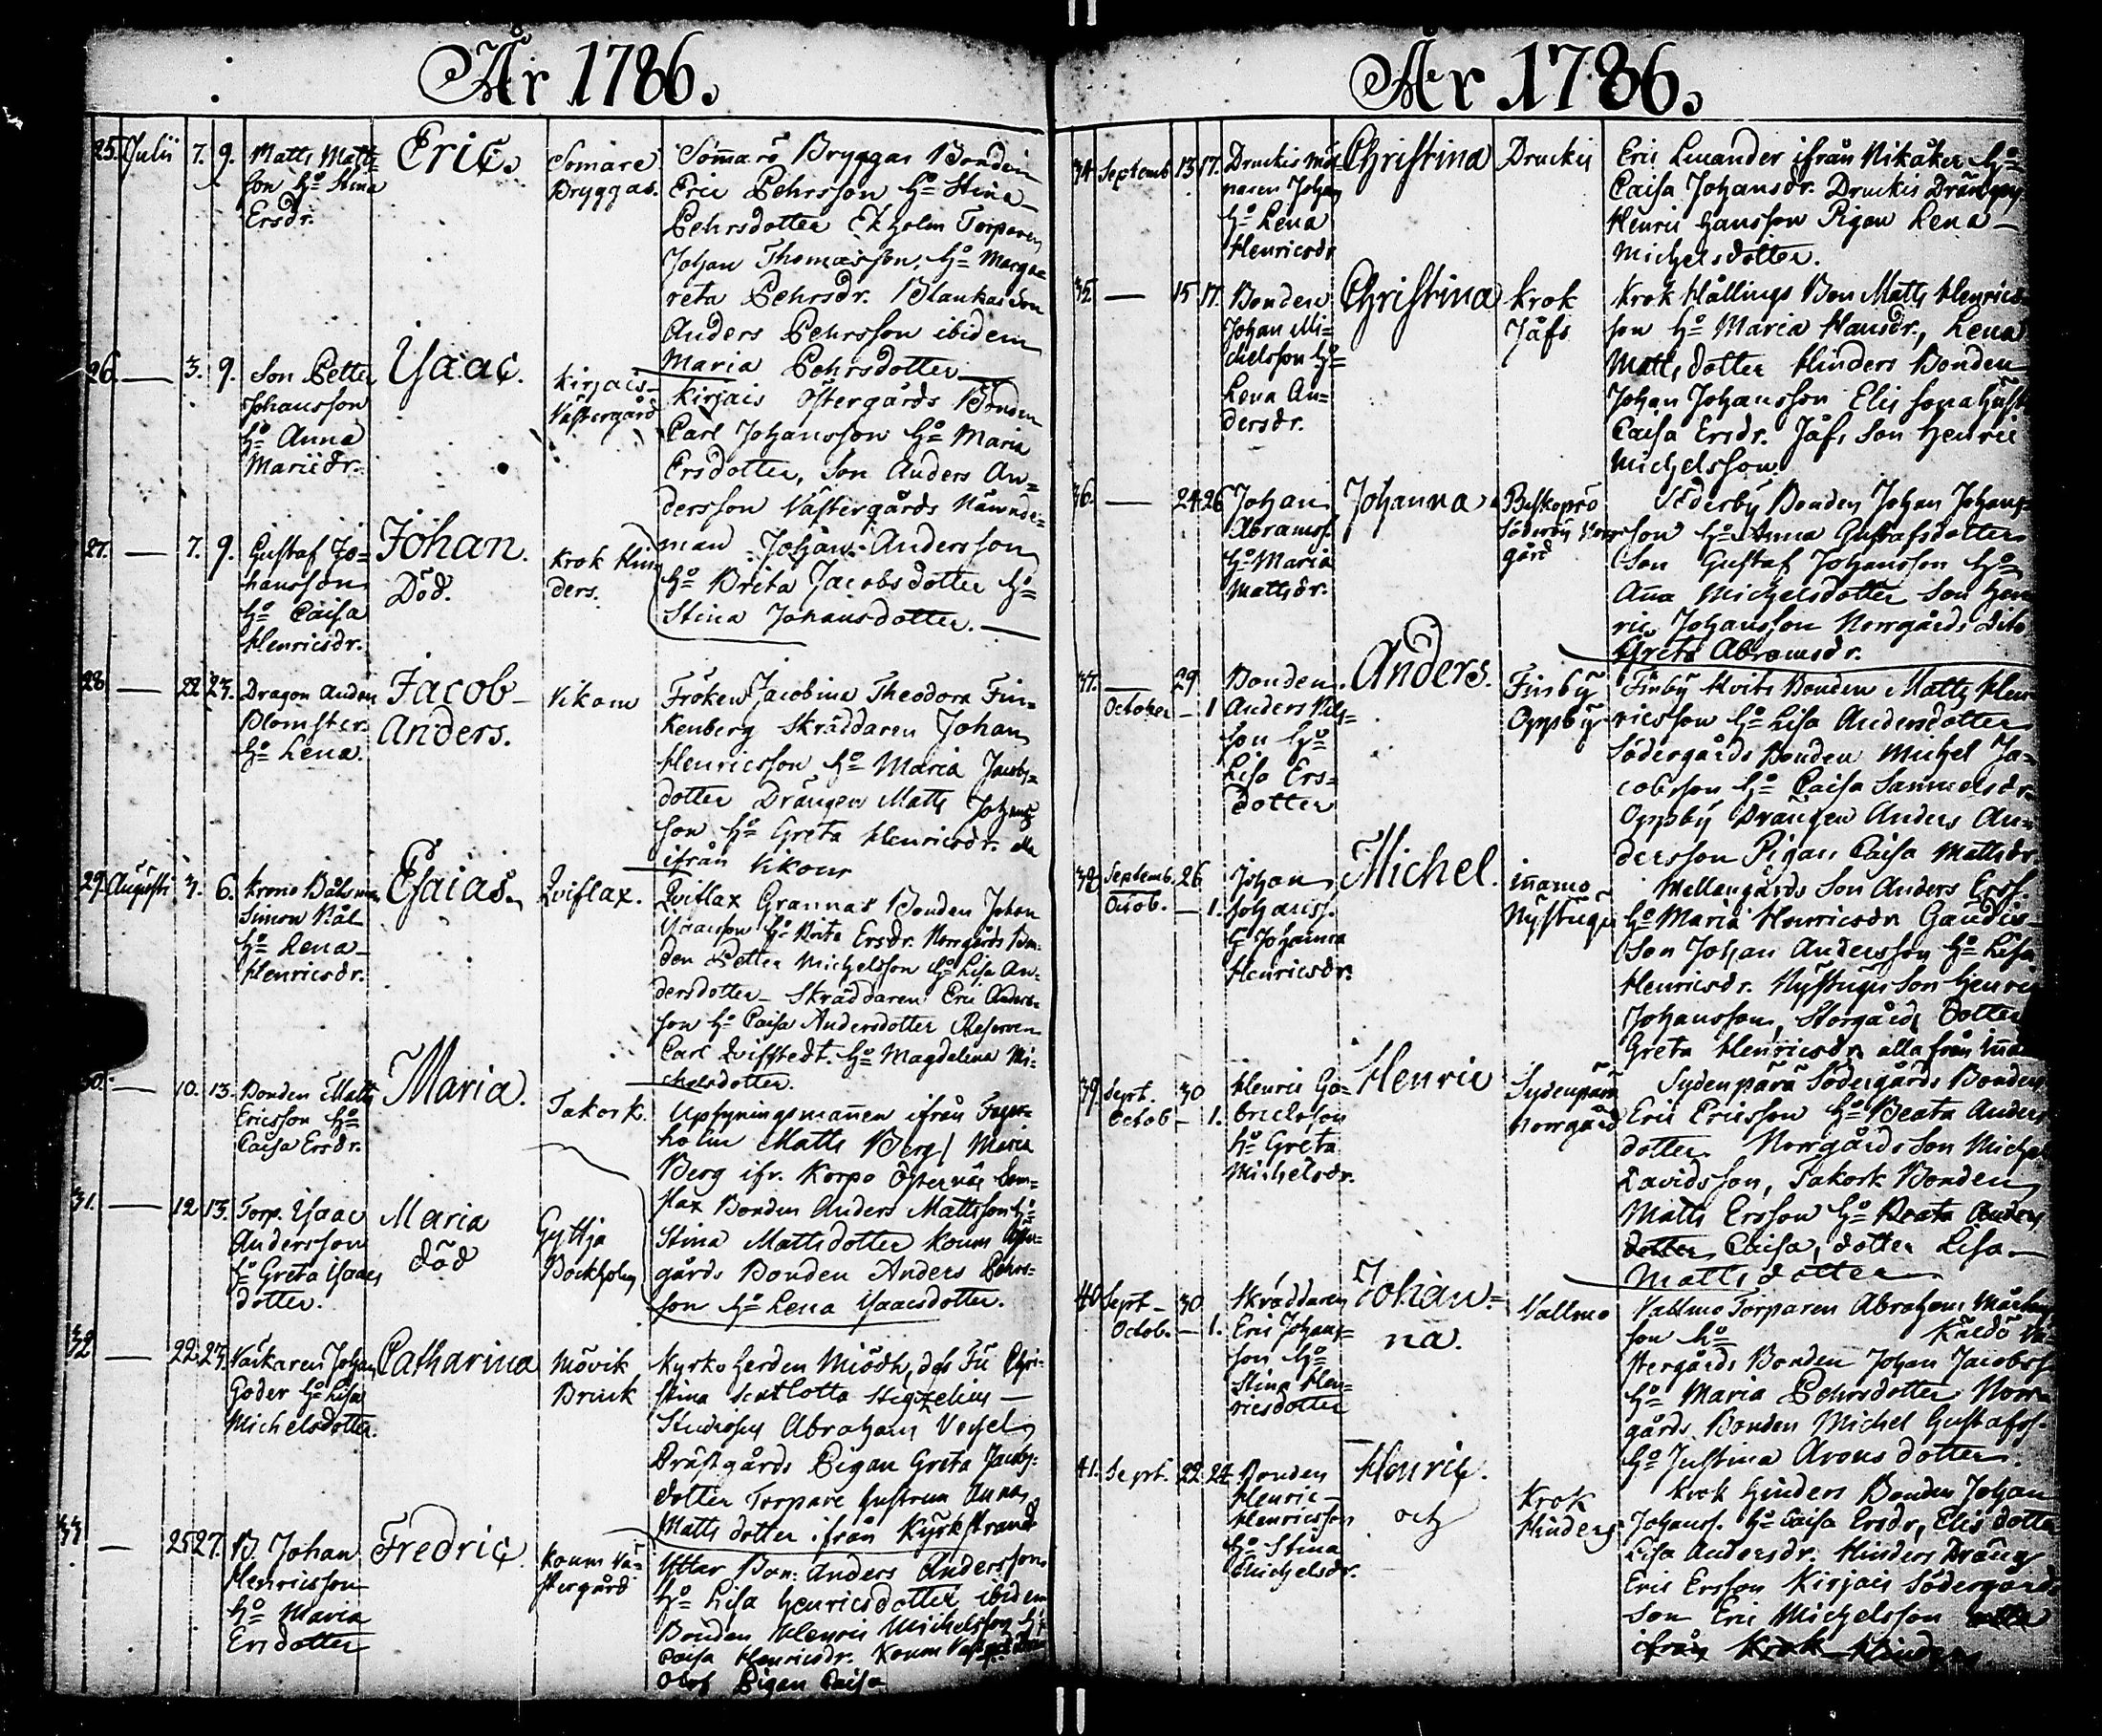 År 1786.
25. Julii 7. 9. Matts Matts=
son Ho Stina
Ersdr.
Eric.
Sömarö
Bryggas.
Sömarö Bryggas Bonden
Eric Pehrsson Ho Stina
Pehrsdotter Ekholm Torparen
Johan Thomasson, Ho Marga=
reta Pehrsdr. Blankas Son
Anders Pehrsson ibidem
Maria Pehrsdotter
26. — 3. 9. Son Petter
Johansson
Ho Anna
Mariidr.
Isaac.
Kirjais
Västergård
Kirjais Östergårds Bonden
Carl Johansson Ho Maria
Ersdotter, Son Anders An=
dersson Västergårds Nämnde=
man Johan Andersson
Ho Brita Jacobsdotter Ho
Stina Johansdotter.
27. — 7. 9. Gustaf Jo=
hansson
Ho Caisa
Henricsdr.
Johan.
Död.
Krok Hin
ders.
28 — 22 23. Dragon Anders
Blomster
Ho Lena.
Jacob
Anders.
Vikom
Fröken Jacobina Theodora Fin=
kenberg Skräddaren Johan
Henricsson Ho Maria Jacobs=
dotter Drängen Matts Johans
son Ho Greta Henricsdr. alla
ifrån Vikom
29. Augusti 3. 6. Krono Båtsman
Simon Nål
Ho Lena
Henricsdr.
Esaias.
Qviflax.
Qviflax Grannas Bonden Johan
Isaacson Ho Brita Ersdr. Norrgårds Bon=
den Petter Michelsson Ho Lisa An=
dersdotter Skräddaren Eric Anders=
son Ho Caisa Andersdotter
Carl Qvifstedt. Ho Magdalena Mi=
chelsdotter.
30. — 10. 13. Bonden Matts
Ericsson Ho
Caisa Ersdr.
Maria.
Takork.
Upsyningsmannen ifrån Fager=
holm Matts Berg/ Maria
Berg ifr. Korpo Östernäs Dom=
flax Bonden Anders Mattsson Ho
Stina Mattsdotter Koum
gårds Bonden Anders Pehrs=
son Ho Lena Isaacsdotter.
31. — 12 13. Torp. Isaac
Andersson
Ho Greta Isaacs
dotter.
Maria
död
Gyttja
Bockholm
32 — 22. 27. Johan
Goder Ho Lisa
Michelsdotter.
Catharina
Mövik
Bruuk
Kyrko Herden Miödh, dess Fru Chri=
stina
Studiosus Abraham
Prästgårds Pigan Greta Jacobs=
dotter Torpare Hustrun Anna
Matts dotter ifrån Kyrkstrand
33 — 25 27. B. Johan
Henricsson
Ho Maria
Ersdotter
Fredric.
Koum Vä=
stergård
Yttar Bon: Anders Andersson
Ho Lisa Henricsdotter ibidem
Bonden Henric Michelsson Ho
Caisa Henricsdr. Koum
Olof Pigan Caisa
År 1786.
34 Septemb. 13 17. Druckis
Johan
Ho Lena
Henricsdr
Christina
Druckis
Eric ifrån Ho
Caisa Johansdr. Druckis Drängen
Henric Hansson Pigan Lena
Michelsdotter.
35. — 15 17. Bonden
Johan Mi=
chelsson Ho
Lena An=
dersdr.
Christina
Krok
Jåfs
Krok Hållings Bon Matts Henrics
son Ho Maria Hansdr., Lena
Mattsdotter Hinders Bonden
Johan Johansson Elis sona
Caisa Ersdr. Jåfs Son Henric
Michelsson
36. — 24 26 Johan
Abramss.
Ho Maria
Mattsdr.
Johanna
Biskopsö
Söderby
gård
Söderby Bonden Johan Johans=
son Ho Anna Gustafsdotter
Son Gustaf Johansson Ho
Ana Michelsdotter Son Hen
ric Johansson Norrgårds dito
Greta Abramsdr.
37. — 29
October — 1
Bonden
Anders Nils=
son Ho
Lisa Ers=
dotter
Anders.
Finby
Oppby
Finby Kvits Bonden Matts Hen
ricsson Ho Lisa Andersdotter
Södergårds Bonden Michel Ja=
cobsson Ho Caisa Samuelsdr.
Oppby Drängen Anders An=
dersson Pigan Caisa Mattsdr
38 Septemb. 26
Octob. — 1.
Johan
Johanss.
H Johanna
Henricsdr.
Michel.
innamo
Nystugu
Mellangårds Son Anders Erss.
Ho Maria Henricsdr.
Son Johan Andersson Ho Lisa
Henricsdr. Nystugu Son Henric
Johansson, Storgårds Dotter
Greta Henricsdr alla från
39. Sept. 30
Octob — 1.
Henric Ga=
brielsson
Ho Greta
Michelsdr.
Henric
Sydenpärä
Norrgård
Sydenpärä Södergårds Bonden
Eric Ericsson Ho Beata Anders
dotter. Norrgårds Son Michel
Davidsson, Takork Bonden
Matts Ersson Ho Beata Anders
dotter Caisa, dotter Lisa
Mattsdotter
40 Sept — 30
Octob. — 1.
Skräddaren
Eric Johans=
son Ho
Stina Hen=
ricsdotter
Johan=
na.
Vallmo
Vallmo Torparen Abraham
son Ho Käldö Vä
stergårds Bonden Johan Jacobss
Ho Maria Pehrsdotter Norr=
gårds Bonden Michel Gustafss.
Ho Justina Arons dotter.
41. Sept. 22. 24 Bonden
Henric
Henricsson
Ho Stina
Michelsdr.
Henric.
och
Krok
Hinders
Krok Hinders Bonden Johan
Johanss. Ho Caisa Ersdr, Elis dotter
Lisa Andersdr. Hinders Dräng
Eric Ersson Kirjais Södergårds
Son Eric Michelsson alla
ifrån Krok Hinders